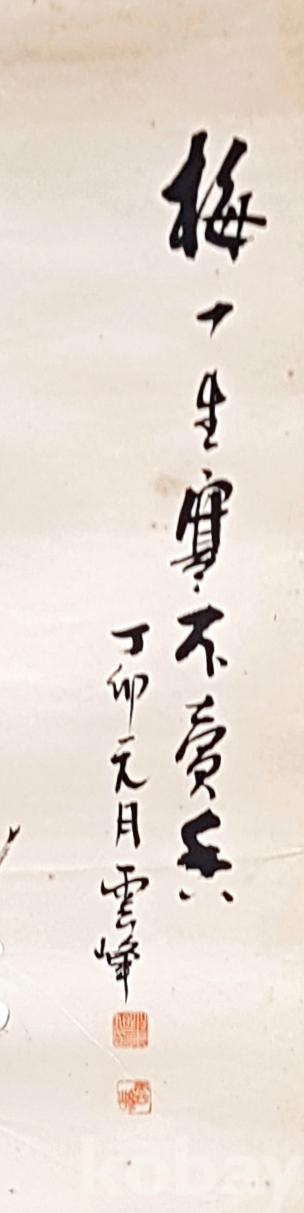 梅一生寒不賣香
丁卯元月雲峰
kobay